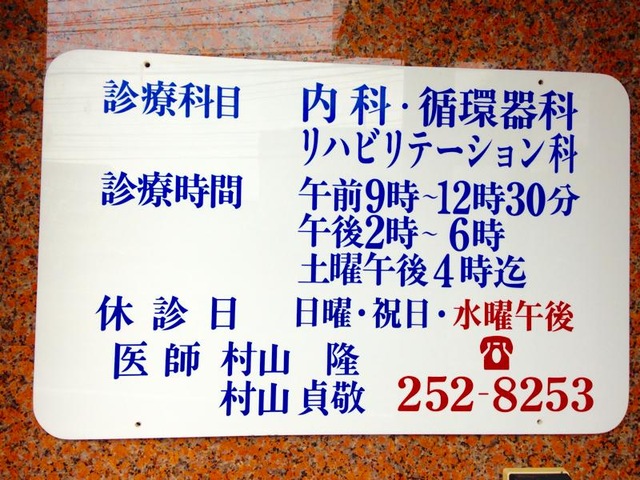 診療科目 内科・循環器科
リハビリテーション科
診療時間 午前9時~12時30分
午後2時~6時
土曜午後4時迄
休診日 日曜・祝日・水曜午後
医師 村山 隆 ☎
村山貞敬 252-8253